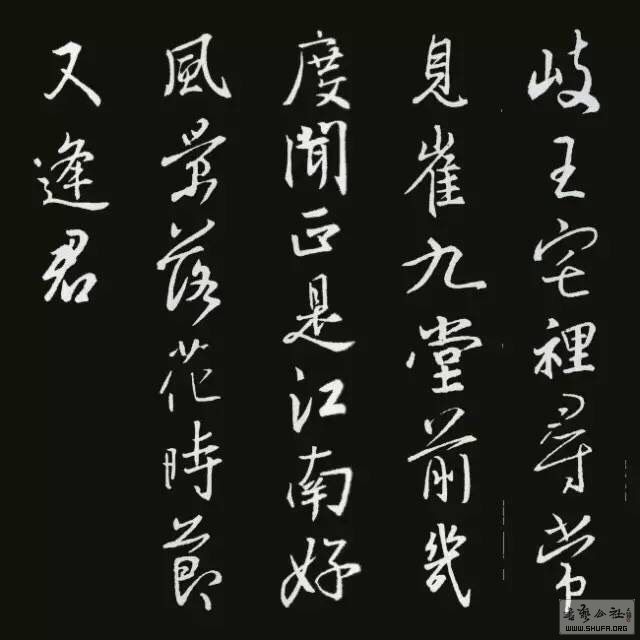 岐王宅裡尋常
見崔九堂前幾
度聞正是江南好
風景落花時節
又逢君
书艺公社
WWW.SHUFA.ORG